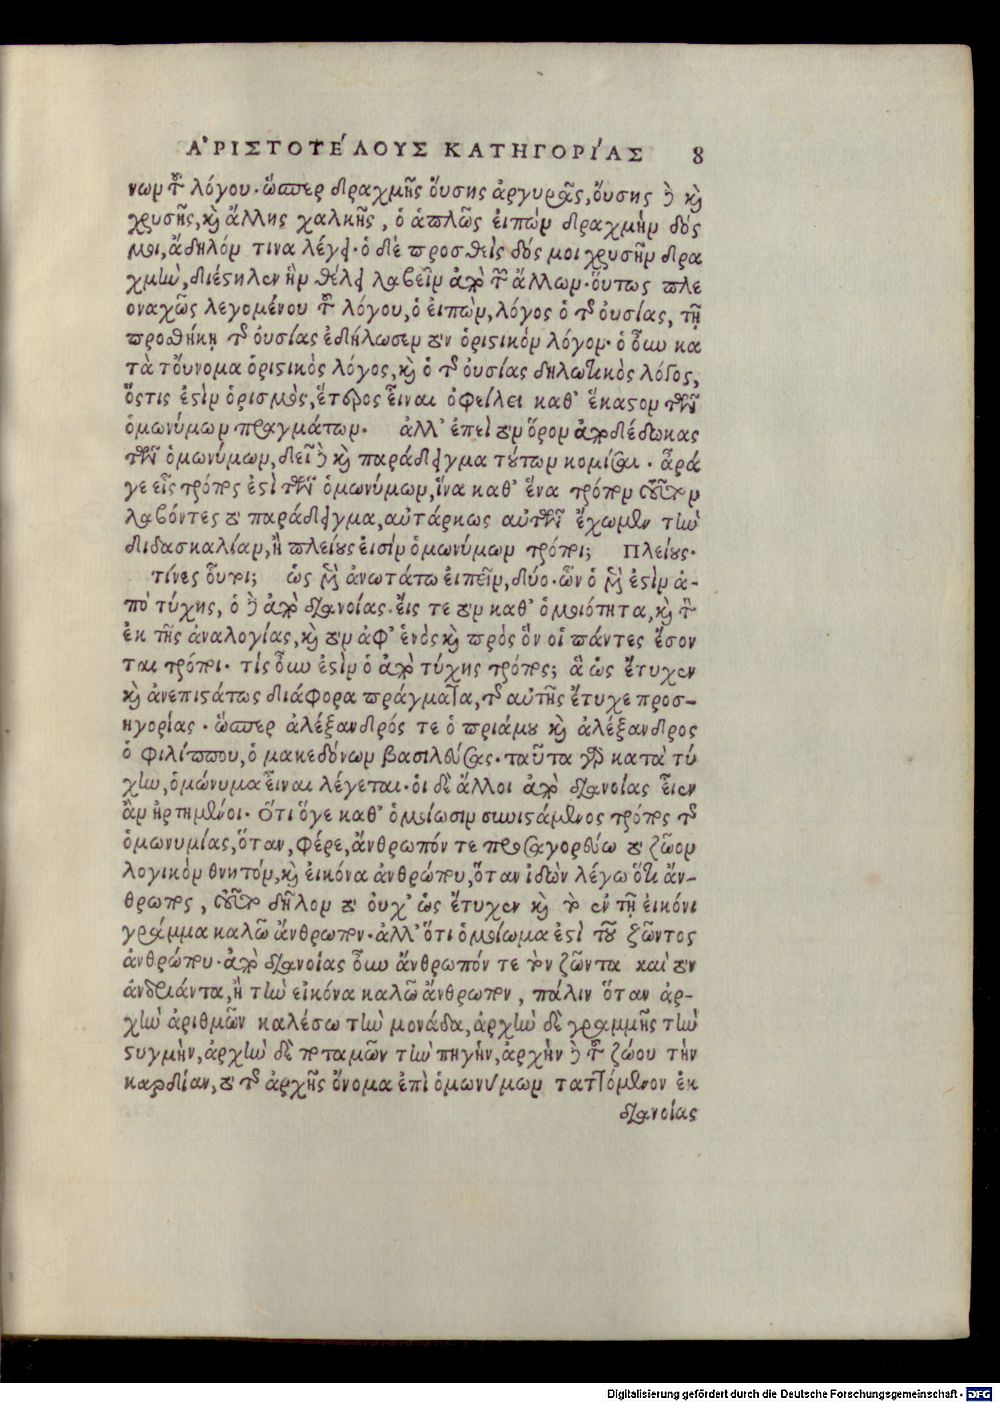 ΑΡΙΣΤΟΤΕΛΟΥΣ ΚΑΤΗΓΟΡΙΑΣ 8
νων τοῦ λόγου· ὥσπερ δραχμῆς οὔσης ἀργυρᾶς, οὔσης δὲ καὶ
χρυσῆς, καὶ ἄλλης χαλκῆς, ὁ ἁπλῶς εἰπὼν δραχμὴν δός
μοι, ἄδηλόν τινα λέγει· ὁ δὲ προσθεὶς δός μοι χρυσῆν δρα
χμὴν, διέστηλεν ἣν θέλει λαβεῖν ἀπὸ τῶν ἄλλων· οὕτως πλε
οναχῶς λεγομένου τοῦ λόγου, ὁ εἰπὼν, λόγος ὁ τῆς οὐσίας, τῇ
προσθήκῃ τῆς οὐσίας ἐδήλωσεν τὸν ὁριστικὸν λόγον· ὁ οὖν κα
τὰ τοὔνομα ὁριστικὸς λόγος, καὶ ὁ τῆς οὐσίας δηλωτικὸς λόγος,
ὅστις ἐστὶν ὁρισμὸς, ἕτερος εἶναι ὀφείλει καθ' ἕκαστον τῶν
ὁμωνύμων πραγμάτων· ἀλλ' ἐπεὶ τὸν ὅρον ἀποδέδωκας
τῶν ὁμωνύμων, δεῖ δὲ καὶ παράδειγμα τούτων κομίσαι· ἆρά
γε εἷς τρόπος ἐστὶ τῶν ὁμωνύμων, ἵνα καθ' ἕνα τρόπον αὐτῶν
λαβόντες τὸ παράδειγμα, αὐτάρκως αὐτῶν ἔχωμεν τὴν
διδασκαλίαν, ἢ πλείους εἰσὶν ὁμωνύμων τρόποι; Πλείους·
τίνες οὗτοι; ὡς μὲν ἀνωτάτω εἰπεῖν, δύο· ὧν ὁ μὲν ἐστὶν ἀ-
πὸ τύχης, ὁ δὲ ἀπὸ διανοίας· εἷς τε τὸν καθ' ὁμοιότητα, καὶ τὸν
ἐκ τῆς ἀναλογίας, καὶ τὸν ἀφ' ἑνὸς καὶ πρὸς ὃν οἱ πάντες ἔσον
ται τρόποι· τίς οὖν ἐστὶν ὁ ἀπὸ τύχης τρόπος; ἃ ὡς ἔτυχεν
καὶ ἀνεπιστάτως διάφορα πράγματα, τῆς αὐτῆς ἔτυχε προσ-
ηγορίας· ὥσπερ ἀλέξανδρός τε ὁ πριάμου καὶ ἀλέξανδρος
ὁ φιλίππου, ὁ μακεδόνων βασιλεύσας· ταῦτα γὰρ κατὰ τύ
χην, ὁμώνυμα εἶναι λέγεται· οἱ δὲ ἄλλοι ἀπὸ διανοίας εἶεν
ἂν ἠρτημένοι· Ὅτι ὅγε καθ' ὁμοίωσιν συνιστάμενος τρόπος τῆς
ὁμωνυμίας, ὅταν, φέρε, ἄνθρωπόν τε προσαγορεύω τὸ ζῶον
λογικὸν θνητόν, καὶ εἰκόνα ἀνθρώπου, ὅταν ἰδὼν λέγω ὅτι ἄν-
θρωπος, δῆλον τὸ οὐχ' ὡς ἔτυχεν καὶ τὸ ἐν τῇ εἰκόνι
γράμμα καλῶ ἄνθρωπον· ἀλλ' ὅτι ὁμοίωμα ἐστὶ τοῦ ζῶντος
ἀνθρώπου· ἀπὸ διανοίας οὖν ἄνθρωπόν τε τὸν ζῶντα καὶ τὸν
ἀνδριάντα, ἢ τὴν εἰκόνα καλῶ ἄνθρωπον, πάλιν ὅταν ἀρ-
χὴν ἀριθμῶν καλέσω τὴν μονάδα, ἀρχὴν δὲ γραμμῆς τὴν
στιγμὴν, ἀρχὴν δὲ ποταμῶν τὴν πηγήν, ἀρχὴν δὲ τοῦ ζώου τὴν
καρδίαν, τὸ τῆς ἀρχῆς ὄνομα ἐπὶ ὁμωνύμων ταττόμενον ἐκ
διανοίας
Digitalisierung gefördert durch die Deutsche Forschungsgemeinschaft · DFG